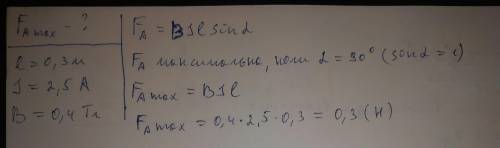 F_A max - ?
l = 0,3 м
I = 2,5 А
B = 0,4 Тл
F_A = BIl sinα
F_A максимально, коли α = 90° (sinα = 1)
F_A max = BIl
F_A max = 0,4·2,5·0,3 = 0,3 (Н)